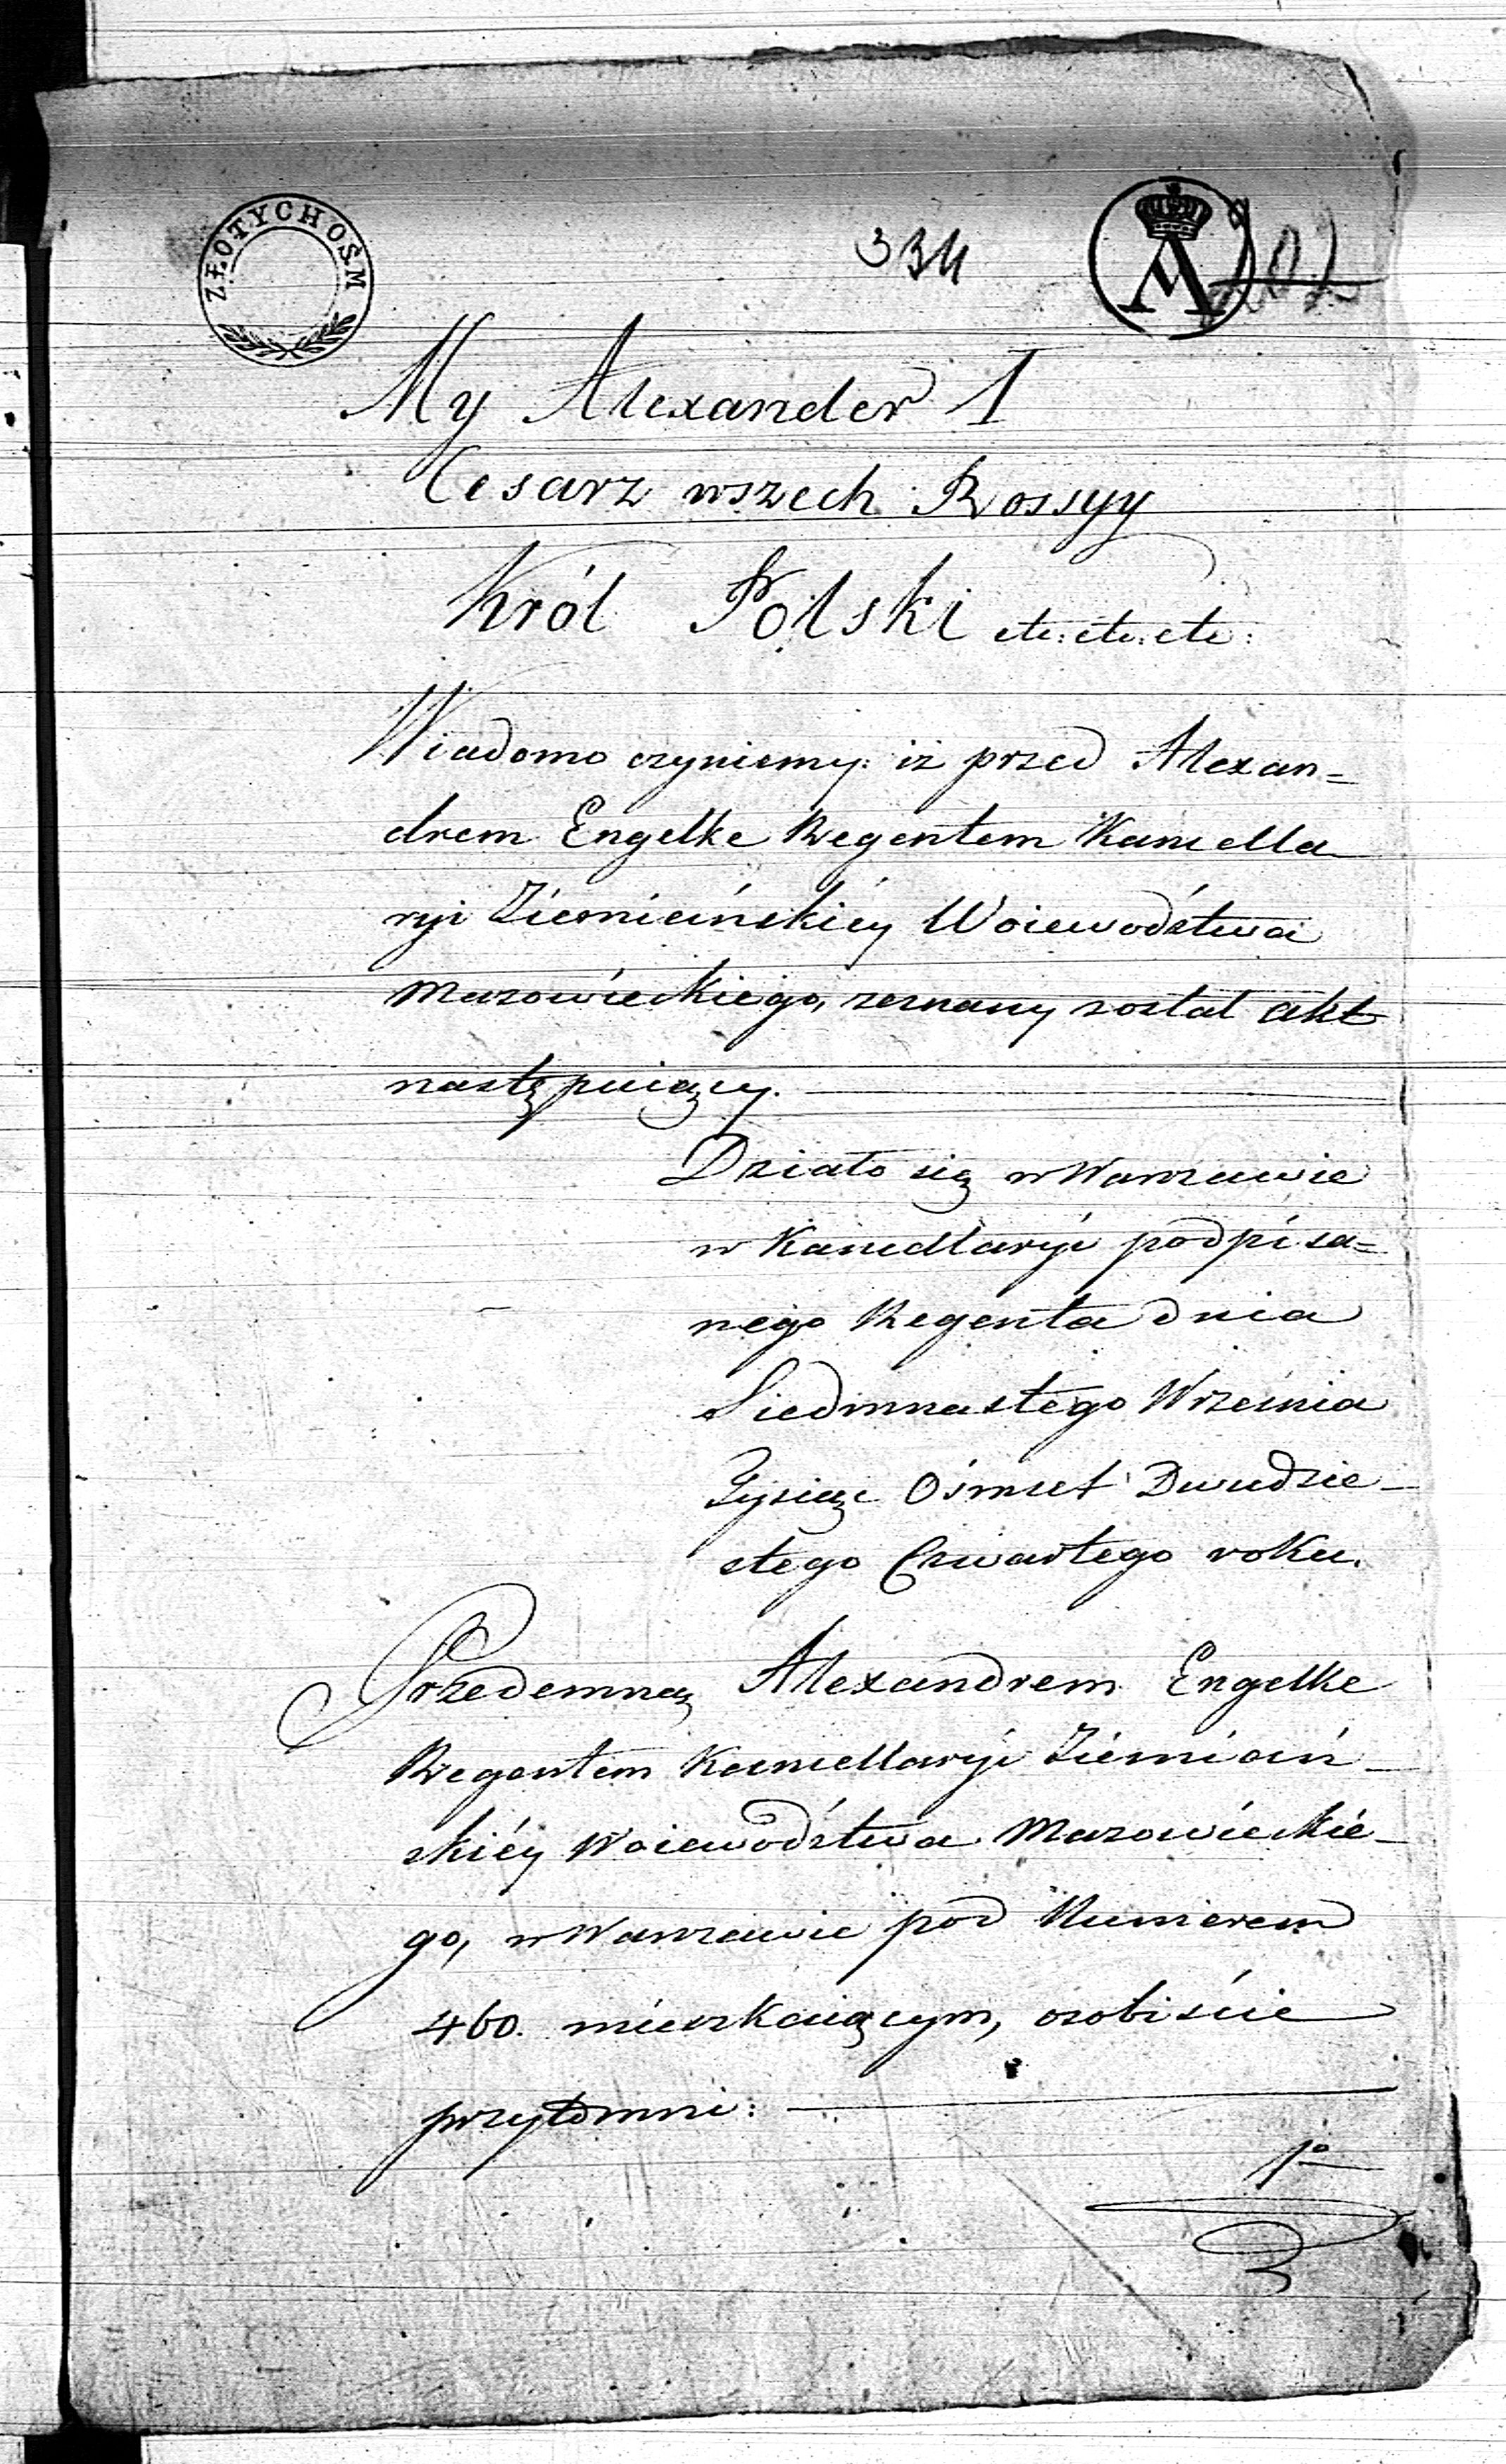 ZŁOTYCH OSM
334
A
202
My Alexander I
Cesarz wszech Rossyy
Król Polski etc: etc: etc:
Wiadomo czyniemy: iż przed Alexan=
drem Engelke Regentem Kancella
ryi Ziemiańskiéy Woiewództwa
Mazowieckiego, zeznany został akt
następuiący.
Działo się w Warszawie
w Kancellaryi podpisa=
nego Regenta dnia
Siedmnastego Września
Tysiąc Ośmset Dwudzie_
stego Czwartego roku.
Przedemną Alexandrem Engelke
Regentem Kancellaryi Ziemiań_
skiéy Woiewództwa Mazowieckie_
go, w Warszawie pod Numerem
460. mieszkaiącym, osobiście
przytomni:
1o